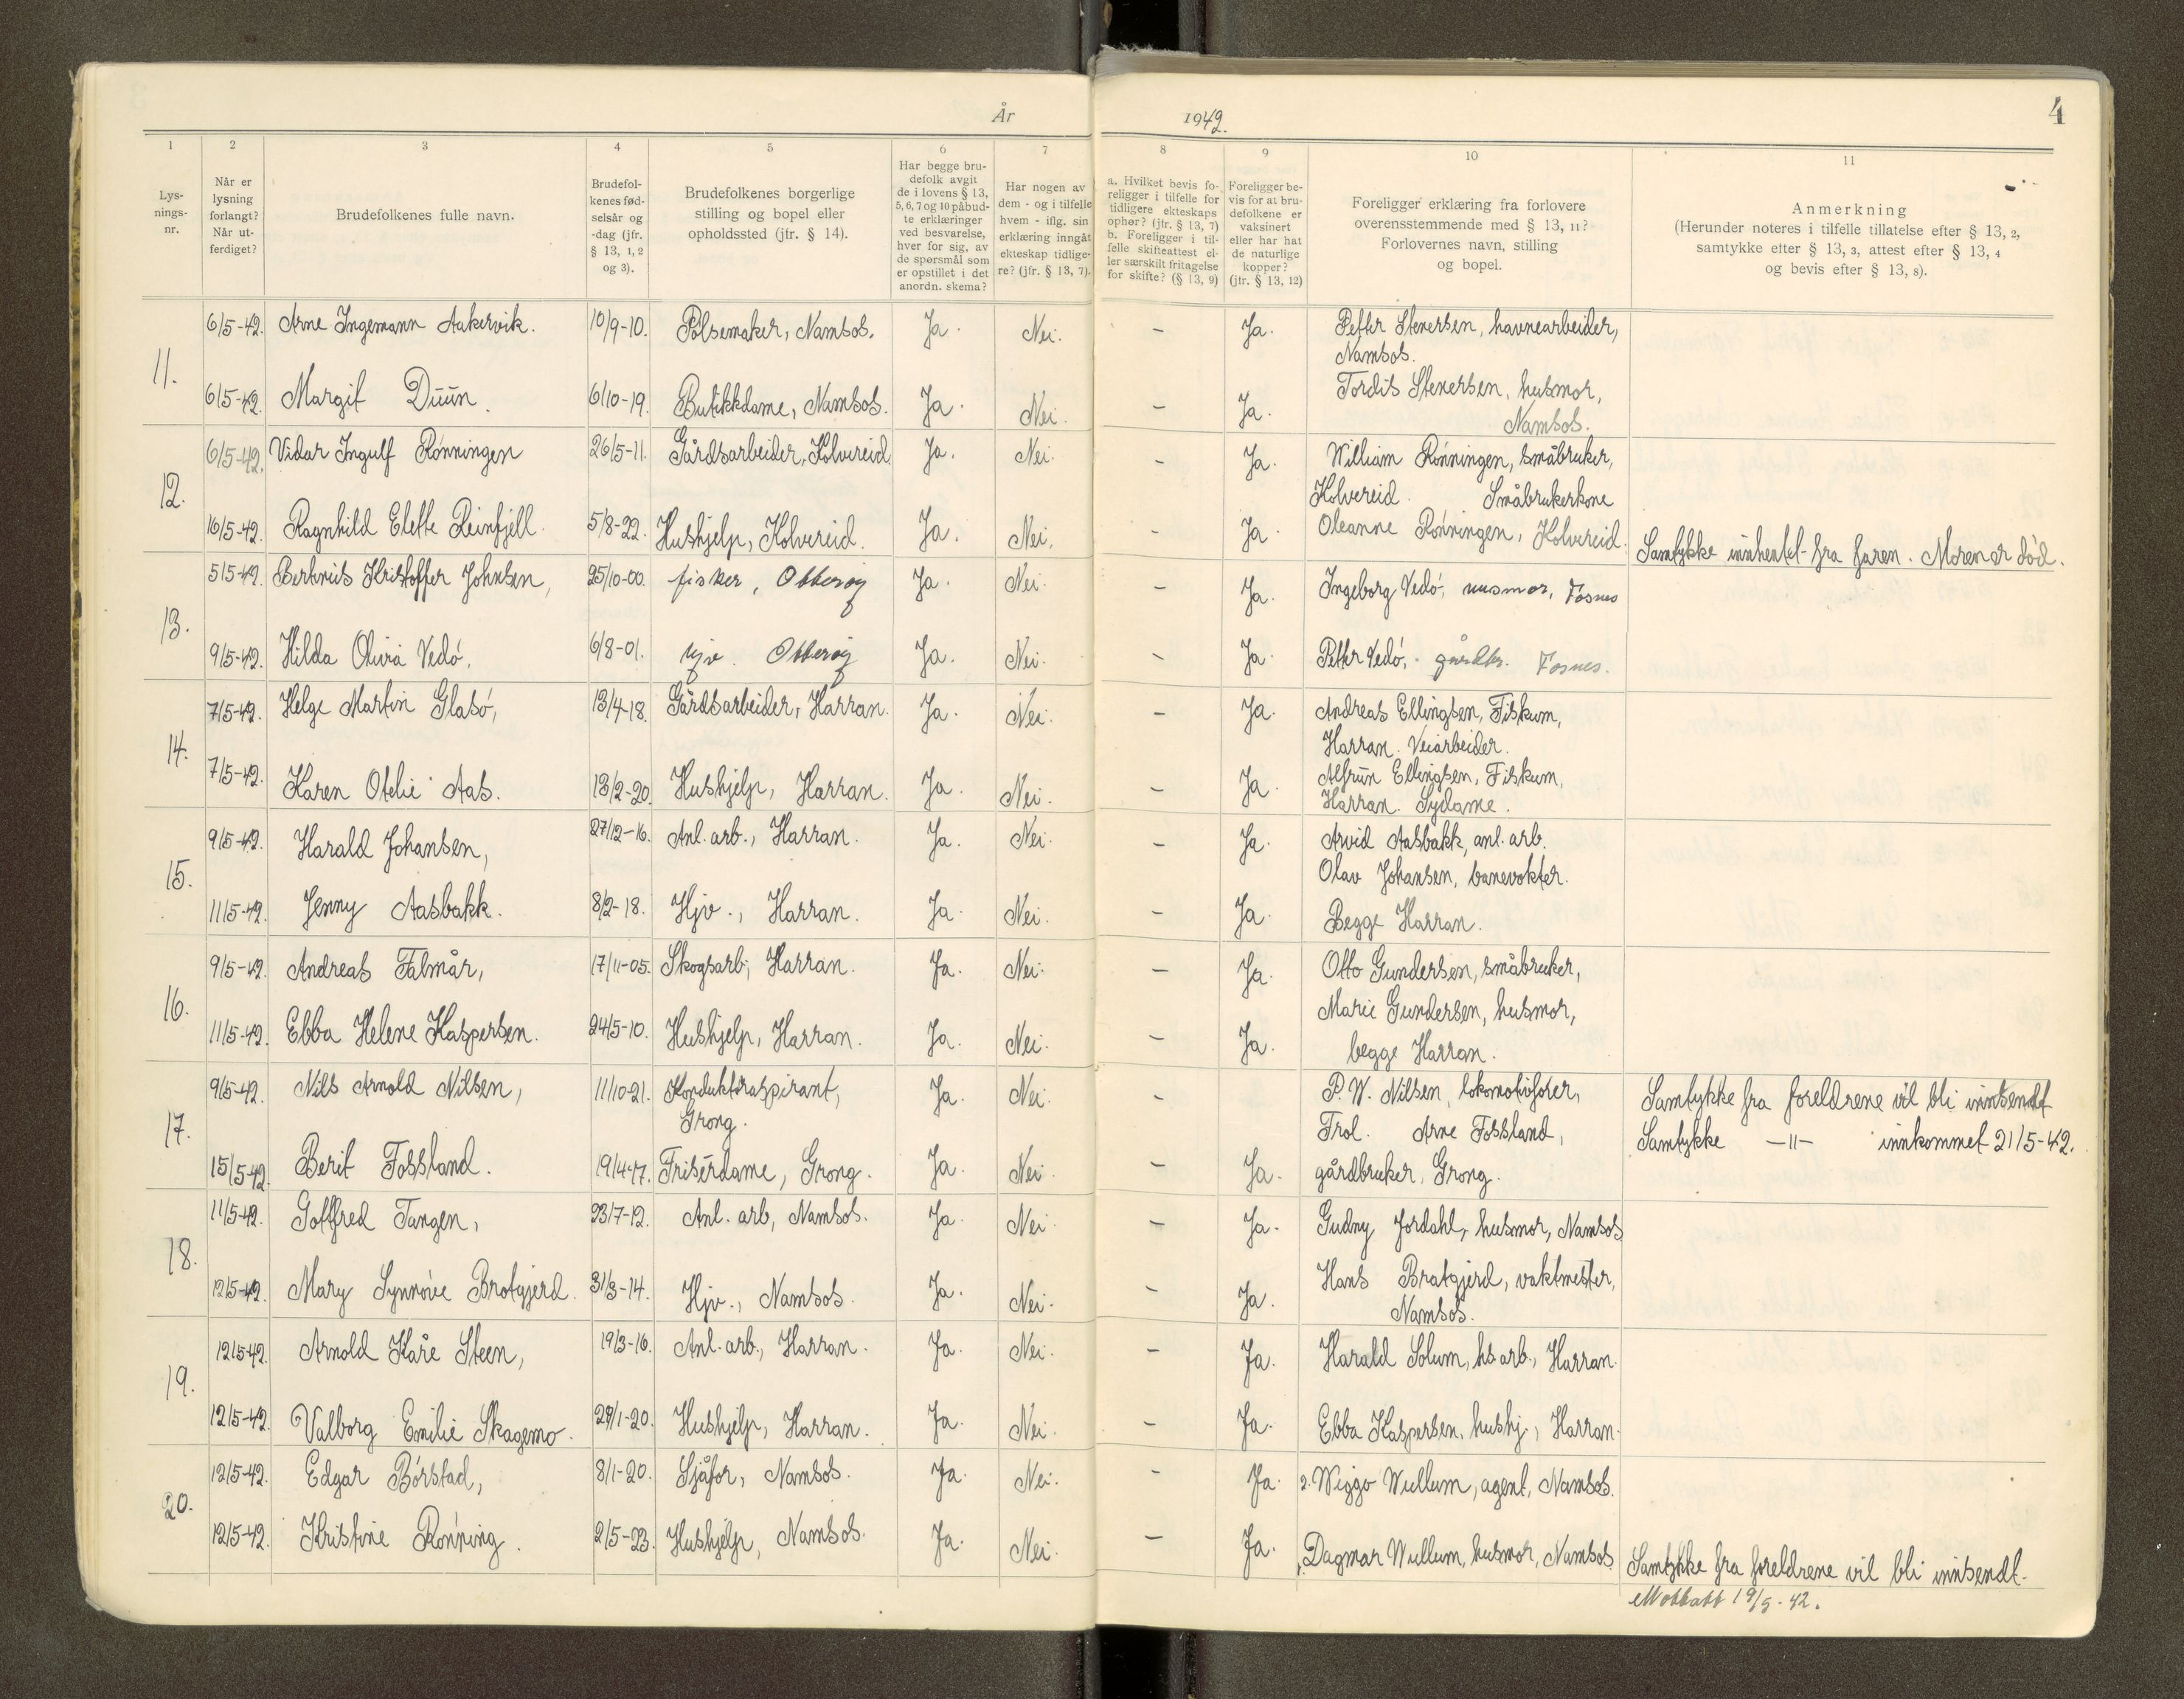 År 1942.
4
1
2
3
4
5
6
7
8
9
10
11
Lys-
nings-
nr.
Når er
lysning
forlangt?
Når ut-
ferdiget?
Brudefolkenes fulle navn.
Brudefol-
kenes fød-
selsår og
-dag (jfr.
§ 13, 1, 2
og 3).
Brudefolkenes borgerlige
stilling og bopel eller
opholdssted (jfr. § 14).
Har begge bru-
defolk avgit
de i lovens § 13,
5, 6, 7 og 10 påbud-
te erklæringer
ved besvarelse,
hver for sig, av
de spørsmål som
er opstillet i det
anordn. skema?
Har nogen av
dem - og i tilfelle
hvem - iflg. sin
erklæring inngåt
ekteskap tidlige-
re? (jfr. § 13, 7).
a. Hvilket bevis fo-
religger i tilfelle for
tidligere ekteskaps
ophør? (jfr. § 13, 7)
b. Foreligger i til-
felle skifteattest el-
ler særskilt fritagelse
for skifte? (§ 13, 9)
Foreligger be-
vis for at bru-
defolkene er
vaksinert
eller har hat
de naturlige
kopper?
(jfr. § 13, 12)
Foreligger erklæring fra forlovere
overensstemmende med § 13, 11?
Forlovernes navn, stilling
og bopel.
Anmerkning
(Herunder noteres i tilfelle tillatelse efter § 13, 2,
samtykke efter § 13, 3, attest efter § 13, 4
og bevis efter § 13, 8).
11.
6/5-42. Arne Ingemann Aakervik. 10/9-10. Pølsemaker, Namsos. Ja. Nei. – Ja. Petter Stenersen, havnearbeider,
Namsos.
6/5-42. Margit Duun. 6/10-19. Butikkdame, Namsos. Ja. Nei. – Ja. Tordis Stenersen, husmor,
Namsos.
12.
6/5-42. Vidar Ingulf Rønningen 26/5-11. Gårdsarbeider, Kolvereid. Ja. Nei. – Ja. William Rønningen, småbruker,
Kolvereid. Småbrukerkone
16/5-42. Ragnhild Elefte Reinfjell. 5/8-22. Hushjelp, Kolvereid. Ja. Nei. – Ja. Oleanne Rønningen, Kolvereid. Samtykke innhentet fra faren. Moren er død.
13.
5/5-42. Berhnits Kristoffer Johnsen, 25/10-00. fisker, Otterøy Ja. Nei. – Ja. Ingeborg Vedø, husmor, Fosnes
9/5-42. Hilda Olivia Vedø, 6/8-01. hjv. Otterøy Ja. Nei. – Ja. Petter Vedø, gårdbr. Fosnes.
14.
7/5-42. Helge Martin Glasø, 13/4-18. Gårdsarbeider, Harran. Ja. Nei. – Ja. Andreas Ellingsen, Fiskum,
Harran. Veiarbeider.
7/5-42. Karen Otelie Aas. 13/2-20. Hushjelp, Harran. Ja. Nei. – Ja. Alfrun Ellingsen, Fiskum,
Harran. Sydame.
15.
9/5-42. Harald Johansen, 27/12-16. Anl. arb., Harran. Ja. Nei. – Ja. Arvid Aasbakk, anl. arb.
Olav Johansen, banevokter.
11/5-42. Jenny Aasbakk. 8/2-18. Hjv., Harran. Ja. Nei. – Ja. Begge Harran.
16.
9/5-42. Andreas Falmår, 17/11-05. Skogsarb., Harran. Ja. Nei. – Ja. Otto Gundersen, småbruker,
Marie Gundersen, husmor,
11/5-42. Ebba Helene Kaspersen. 24/5-10. Hushjelp, Harran. Ja. Nei. – Ja. begge Harran.
17.
9/5-42. Nils Arnold Nilsen, 11/10-21. Konduktøraspirant,
Grong. Ja. Nei. – P. W. Nilsen, lokomotivfører, Samtykke fra foreldrene vil bli innsendt
Frol. Arne Fossland, Samtykke –"– innkommet 21/5-42.
15/5-42. Berit Fossland. 19/4-17. Frisérdame, Grong. Ja. Nei. – Ja. gårdbruker, Grong.
18.
11/5-42. Gottfred Tangen, 23/7-12. Anl. arb, Namsos. Ja. Nei. – Ja. Gudny Jordahl, husmor, Namsos
12/5-42. Mary Synnøve Bratgjerd. 31/3-14. Hjv., Namsos. Ja. Nei. – Ja. Hans Bratgjerd, vaktmester,
Namsos.
19.
12/5-42. Arnold Kåre Steen, 19/3-16. Anl. arb., Harran. Ja. Nei. – Ja. Harald Solum, hs arb., Harran.
12/5-42. Valborg Emilie Skagemo. 29/1-20. Hushjelp, Harran. Ja. Nei. – Ja. Ebba Kaspersen, hushj., Harran.
20.
12/5-42. Edgar Børstad, 8/1-20. Sjåfør, Namsos. Ja. Nei. – Ja. 2. Wiggo Wullum, agent, Namsos.
12/5-42. Kristine Rønning. 2/5-23. Hushjelp, Namsos. Ja. Nei. – Ja. 1. Dagmar Wullum, husmor, Namsos. Samtykke fra foreldrene vil bli innsendt.
Mottatt 19/5-42.